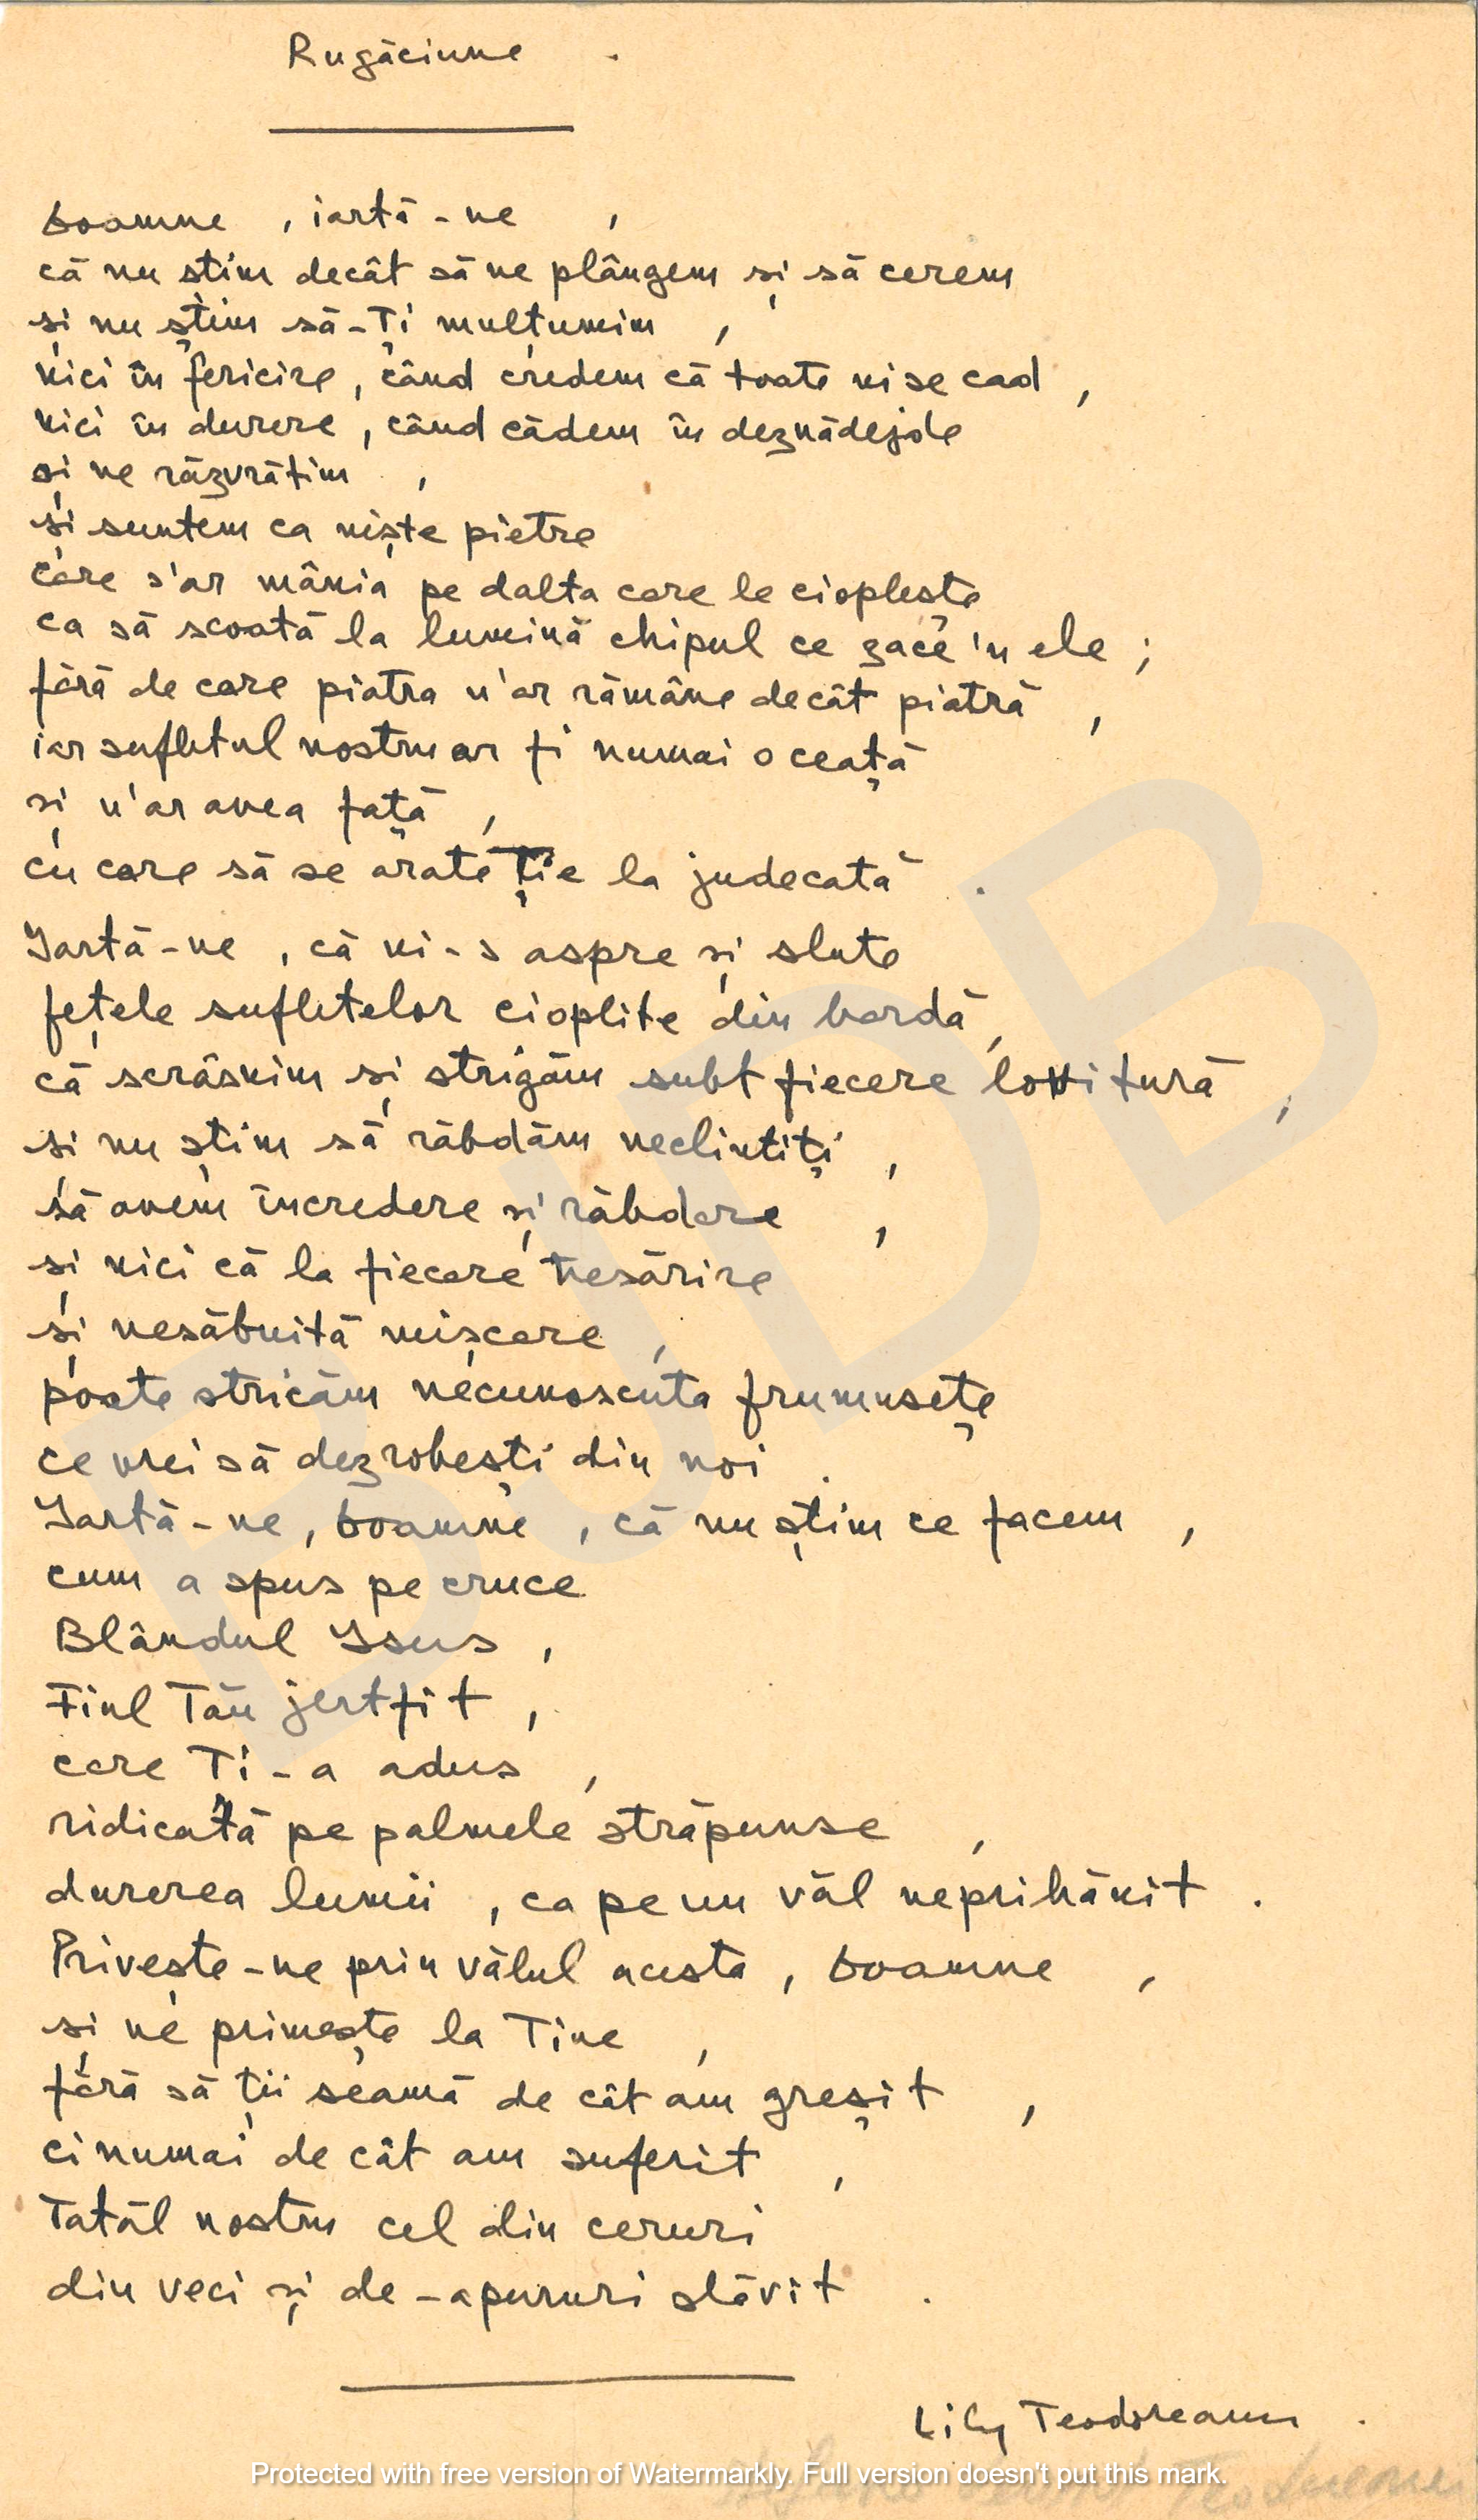 Rugăciune .
Doamne , iartă-ne ,
că nu știm decât să ne plângem și să cerem
și nu știm să-Ți mulțumim ,
nici în fericire, când credem că toate ni se cad ,
nici în durere, când cădem în deznădejde
și ne răzvrătim ,
și suntem ca niște pietre
care s'ar mânia pe dalta care le cioplește
ca să scoată la lumină chipul ce zace 'n ele ;
fără de care piatra n'ar rămâne decât piatră ,
iar sufletul nostru ar fi numai o ceață
și n'ar avea față ,
cu care să se arate Ție la judecată .
Iartă-ne , că ni-s aspre și slute
fețele sufletelor cioplite din bardă ,
că scrâșnim și strigăm subt fiecare lovitură ,
și nu știm să răbdăm neclintiți ,
să avem încredere și răbdare ,
și nici că la fiecare tresărire
și nesăbuită mișcare ,
poate stricăm necunoscuta frumusețe
ce vrei să dezrobești din noi .
Iartă-ne, Doamne , că nu știm ce facem ,
cum a spus pe cruce
Blândul Isus ,
Fiul Tău jertfit ,
care Ti-a adus ,
ridicată pe palmele străpunse ,
durerea lumii , ca pe un văl neprihănit .
Privește-ne prin vălul acesta , Doamne ,
și ne primește la Tine ,
fără să ții seamă de cât am greșit ,
ci numai de cât am suferit ,
Tatăl nostru cel din ceruri
din veci și de-apururi slăvit .
Lily Teodoreanu .
Teodoreanu
Protected with free version of Watermarkly. Full version doesn't put this mark.
BJDB